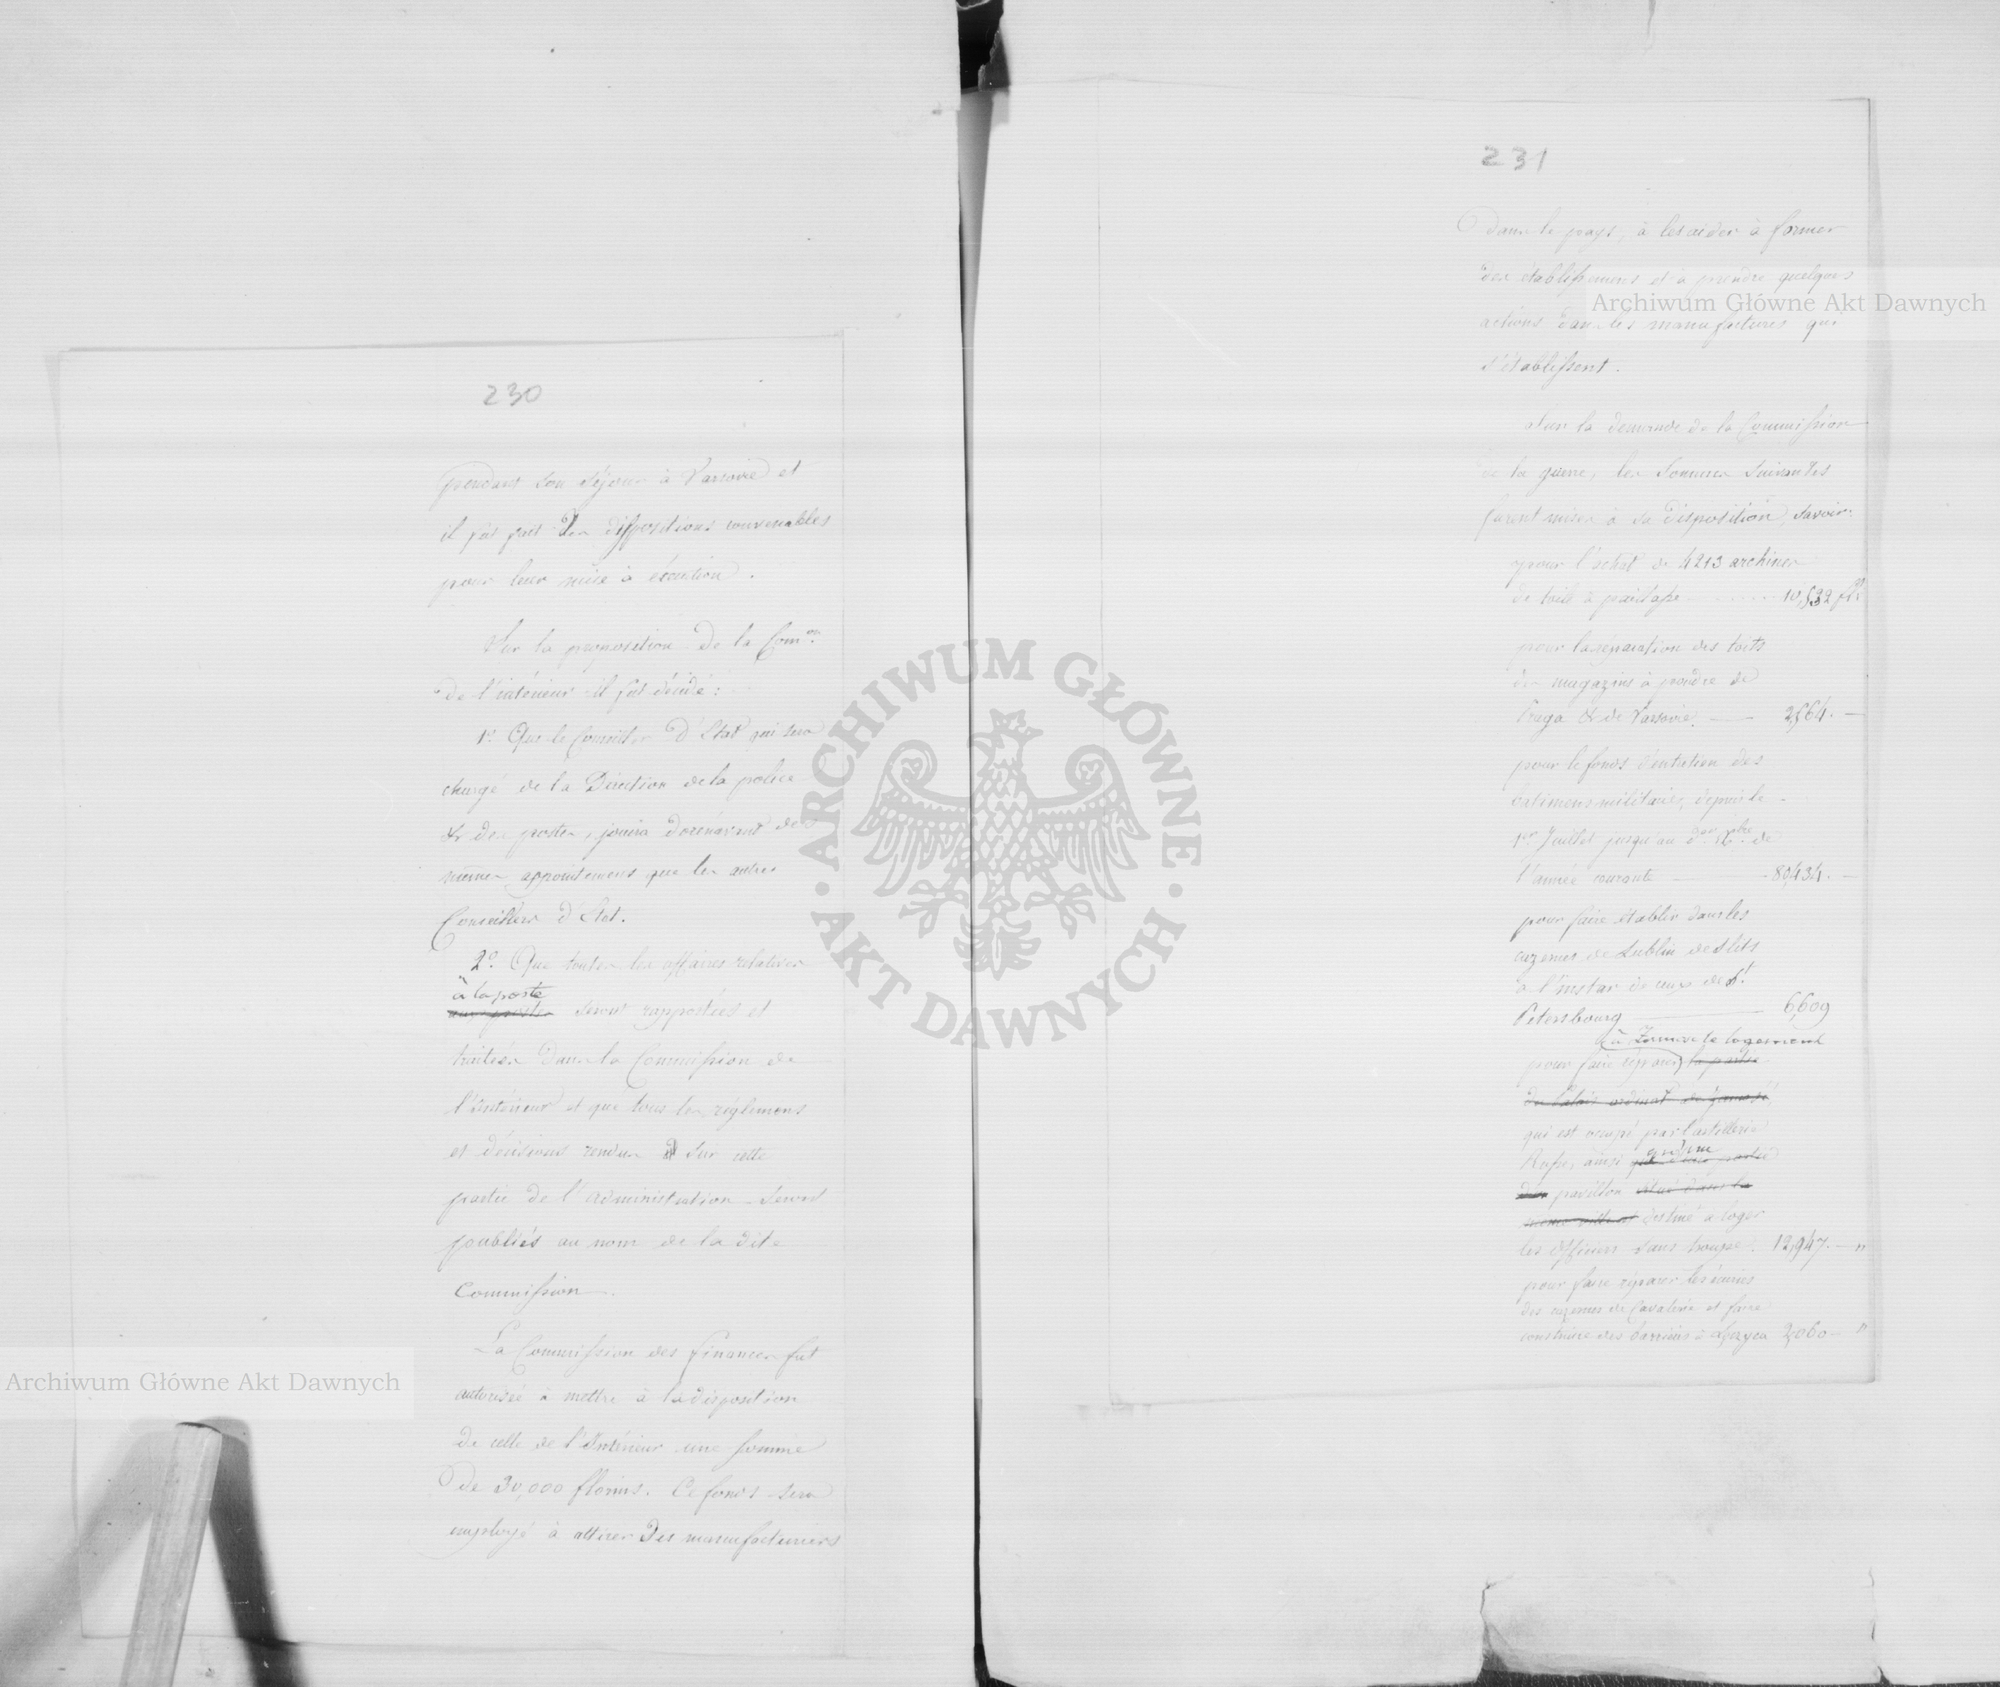 230
pendant son séjour à Varsovie et
il fut fait des dispositions convenables
pour leur mise à éxécution.
Sur la proposition de la Com.on
de l'intérieur il fut décidé:
1o Que le Conseiller d'Etat qui sera
chargé de la Direction de la police
& des postes, jouira dorénavant des
mêmes appointemens que les autres
Conseillers d'Etat.
2o. Que toutes les affaires relatives
à la poste
aux postes seront rapportées et
traitées dans la Commission de
l'Intérieur et que tous les réglemens
et décisions rendus sur cette
partie de l'administration seront
publiés au nom de la dite
Commission.
La Commission des finances fut
autorisée à mettre à la disposition
de celle de l'Intérieur une somme
de 30,000 florins. Ce fonds sera
employé à attirer des manufacturiers
231
dans le pays, à les aider à former
des établissemens et à prendre quelques
actions dans les manufactures qui
s'établissent.
Sur la demande de la Commission
de la guerre, les sommes suivantes
furent mises à sa disposition, savoir:
pour l'achat de 4213 archines
de toile à paillasse 10,532 fl.
pour la réparation des toits
des magazins à poudre de
Praga & de Varsovie. 2,564. —
pour le fonds d'entretien des
batimens militaires, depuis le
1er Juillet jusqu'au de
l'année courante — 80,434. —
pour faire établir dans les
cazernes de Lublin des lits
à l'instar de ceux de St.
Petersbourg — 6,609
à Zamosc le logement
pour faire réparer la partie
du Palais ordinat de Zamosc
qui est occupé par l'artillerie
qu'un
Russe, ainsi que d'une partie
d'un pavillon situé dans la
même ville et destiné à loger
les officiers sans troupe. 12,947. — "
pour faire réparer les écuries
des cazernes de Cavalerie et faire
construire des barrières à 2,060 — "
Archiwum Główne Akt Dawnych
Archiwum Główne Akt Dawnych
ARCHIWUM GŁÓWNE
AKT DAWNYCH